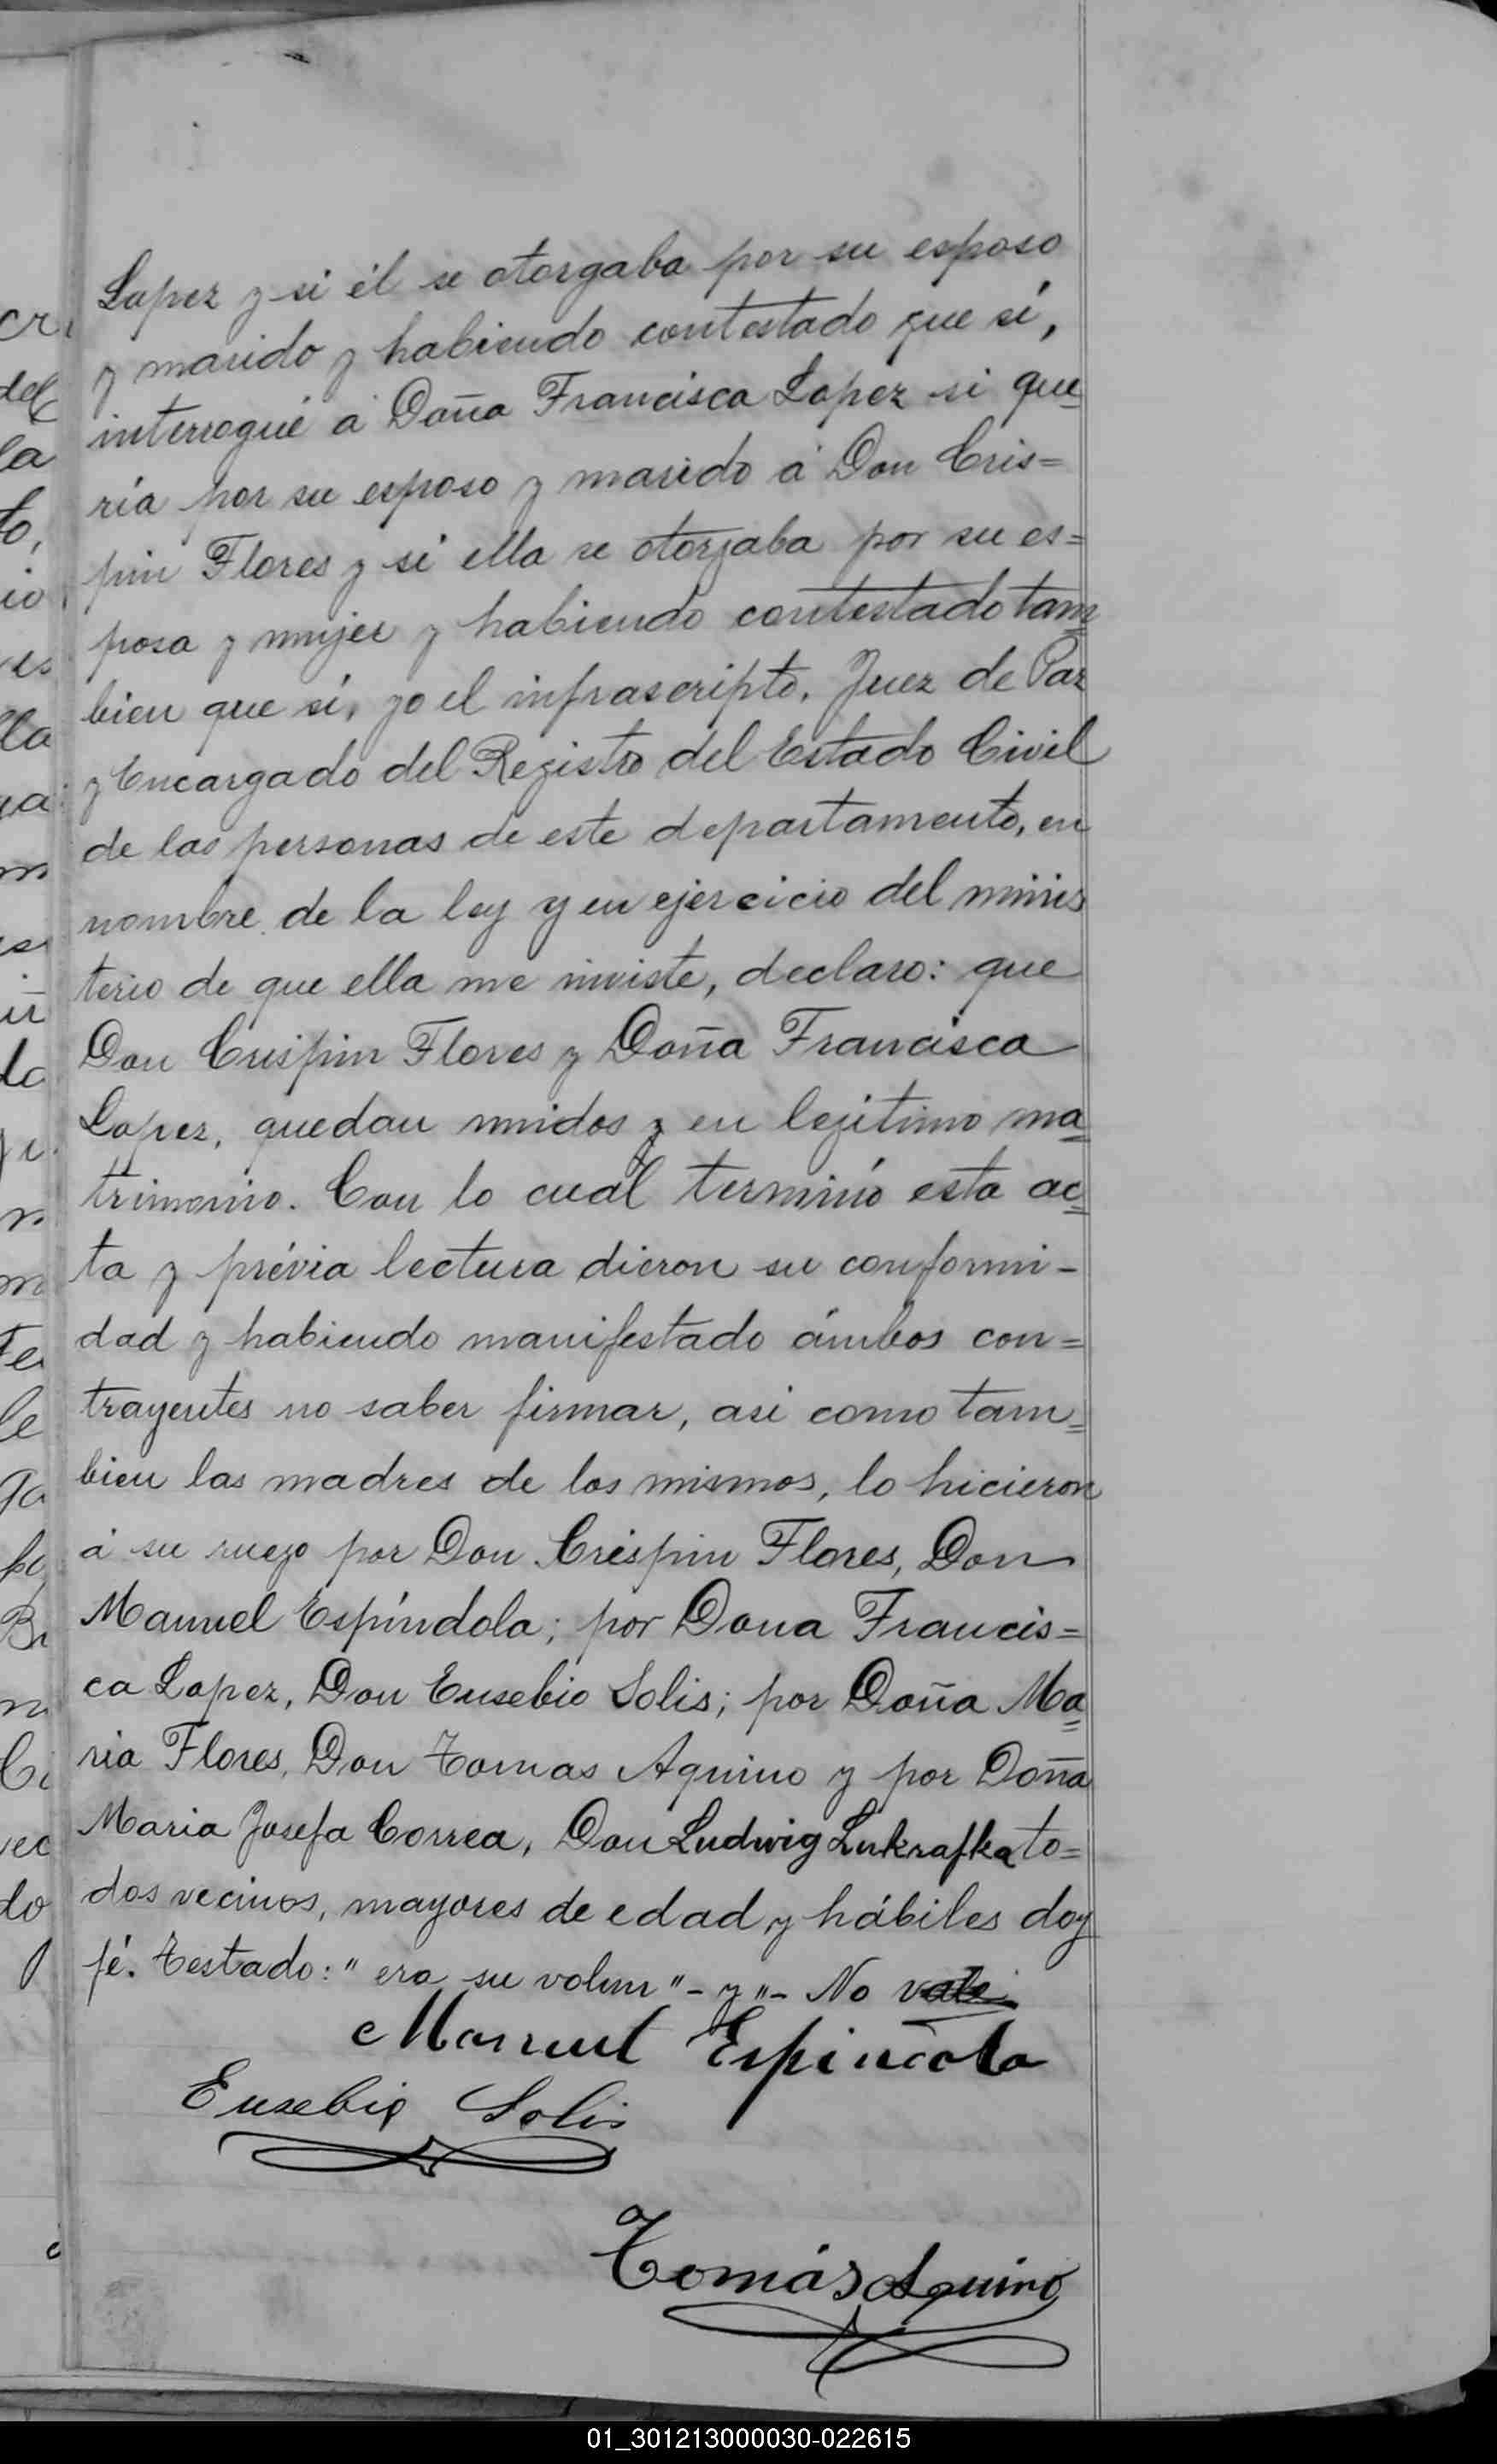 Lopez y si él se otorgaba por su esposo
y marido y habiendo contestado que sí,
interrogué á Doña Francisca Lopez si que=
ría por su esposo y marido á Don Cris=
pin Flores y si ella se otorgaba por su es=
posa y mujer y habiendo contestado tam=
bien que sí, yo el infrascripto, Juez de Paz
y Encargado del Registro del Estado Civil
de las personas de este departamento, en
nombre de la ley y en ejercicio del minis
terio de que ella me inviste, declaro: que
Don Crispin Flores y Doña Francisca
Lopez, quedan unidos y en lejítimo ma=
trimonio. Con lo cual terminó esta ac=
ta y prévia lectura dieron su conformi-
dad y habiendo manifestado ámbos con=
trayentes no saber firmar, asi como tam=
bien las madres de los mismos, lo hicieron
á su ruego por Don Crispin Flores, Don
Manuel Espíndola; por Dona Francis=
ca Lopez, Don Eusebio Solis; por Doña Ma=
ria Flores, Don Tomas Aquino y por Doña
Maria Josefa Correa, Don Ludwig Lukrafka to=
dos vecinos, mayores de edad y hábiles doy
fé. Testado: " era su volun " - y " - No vale
Manuel Espindola
Eusebio Solis
Tomás Aquino
01_301213000030-022615